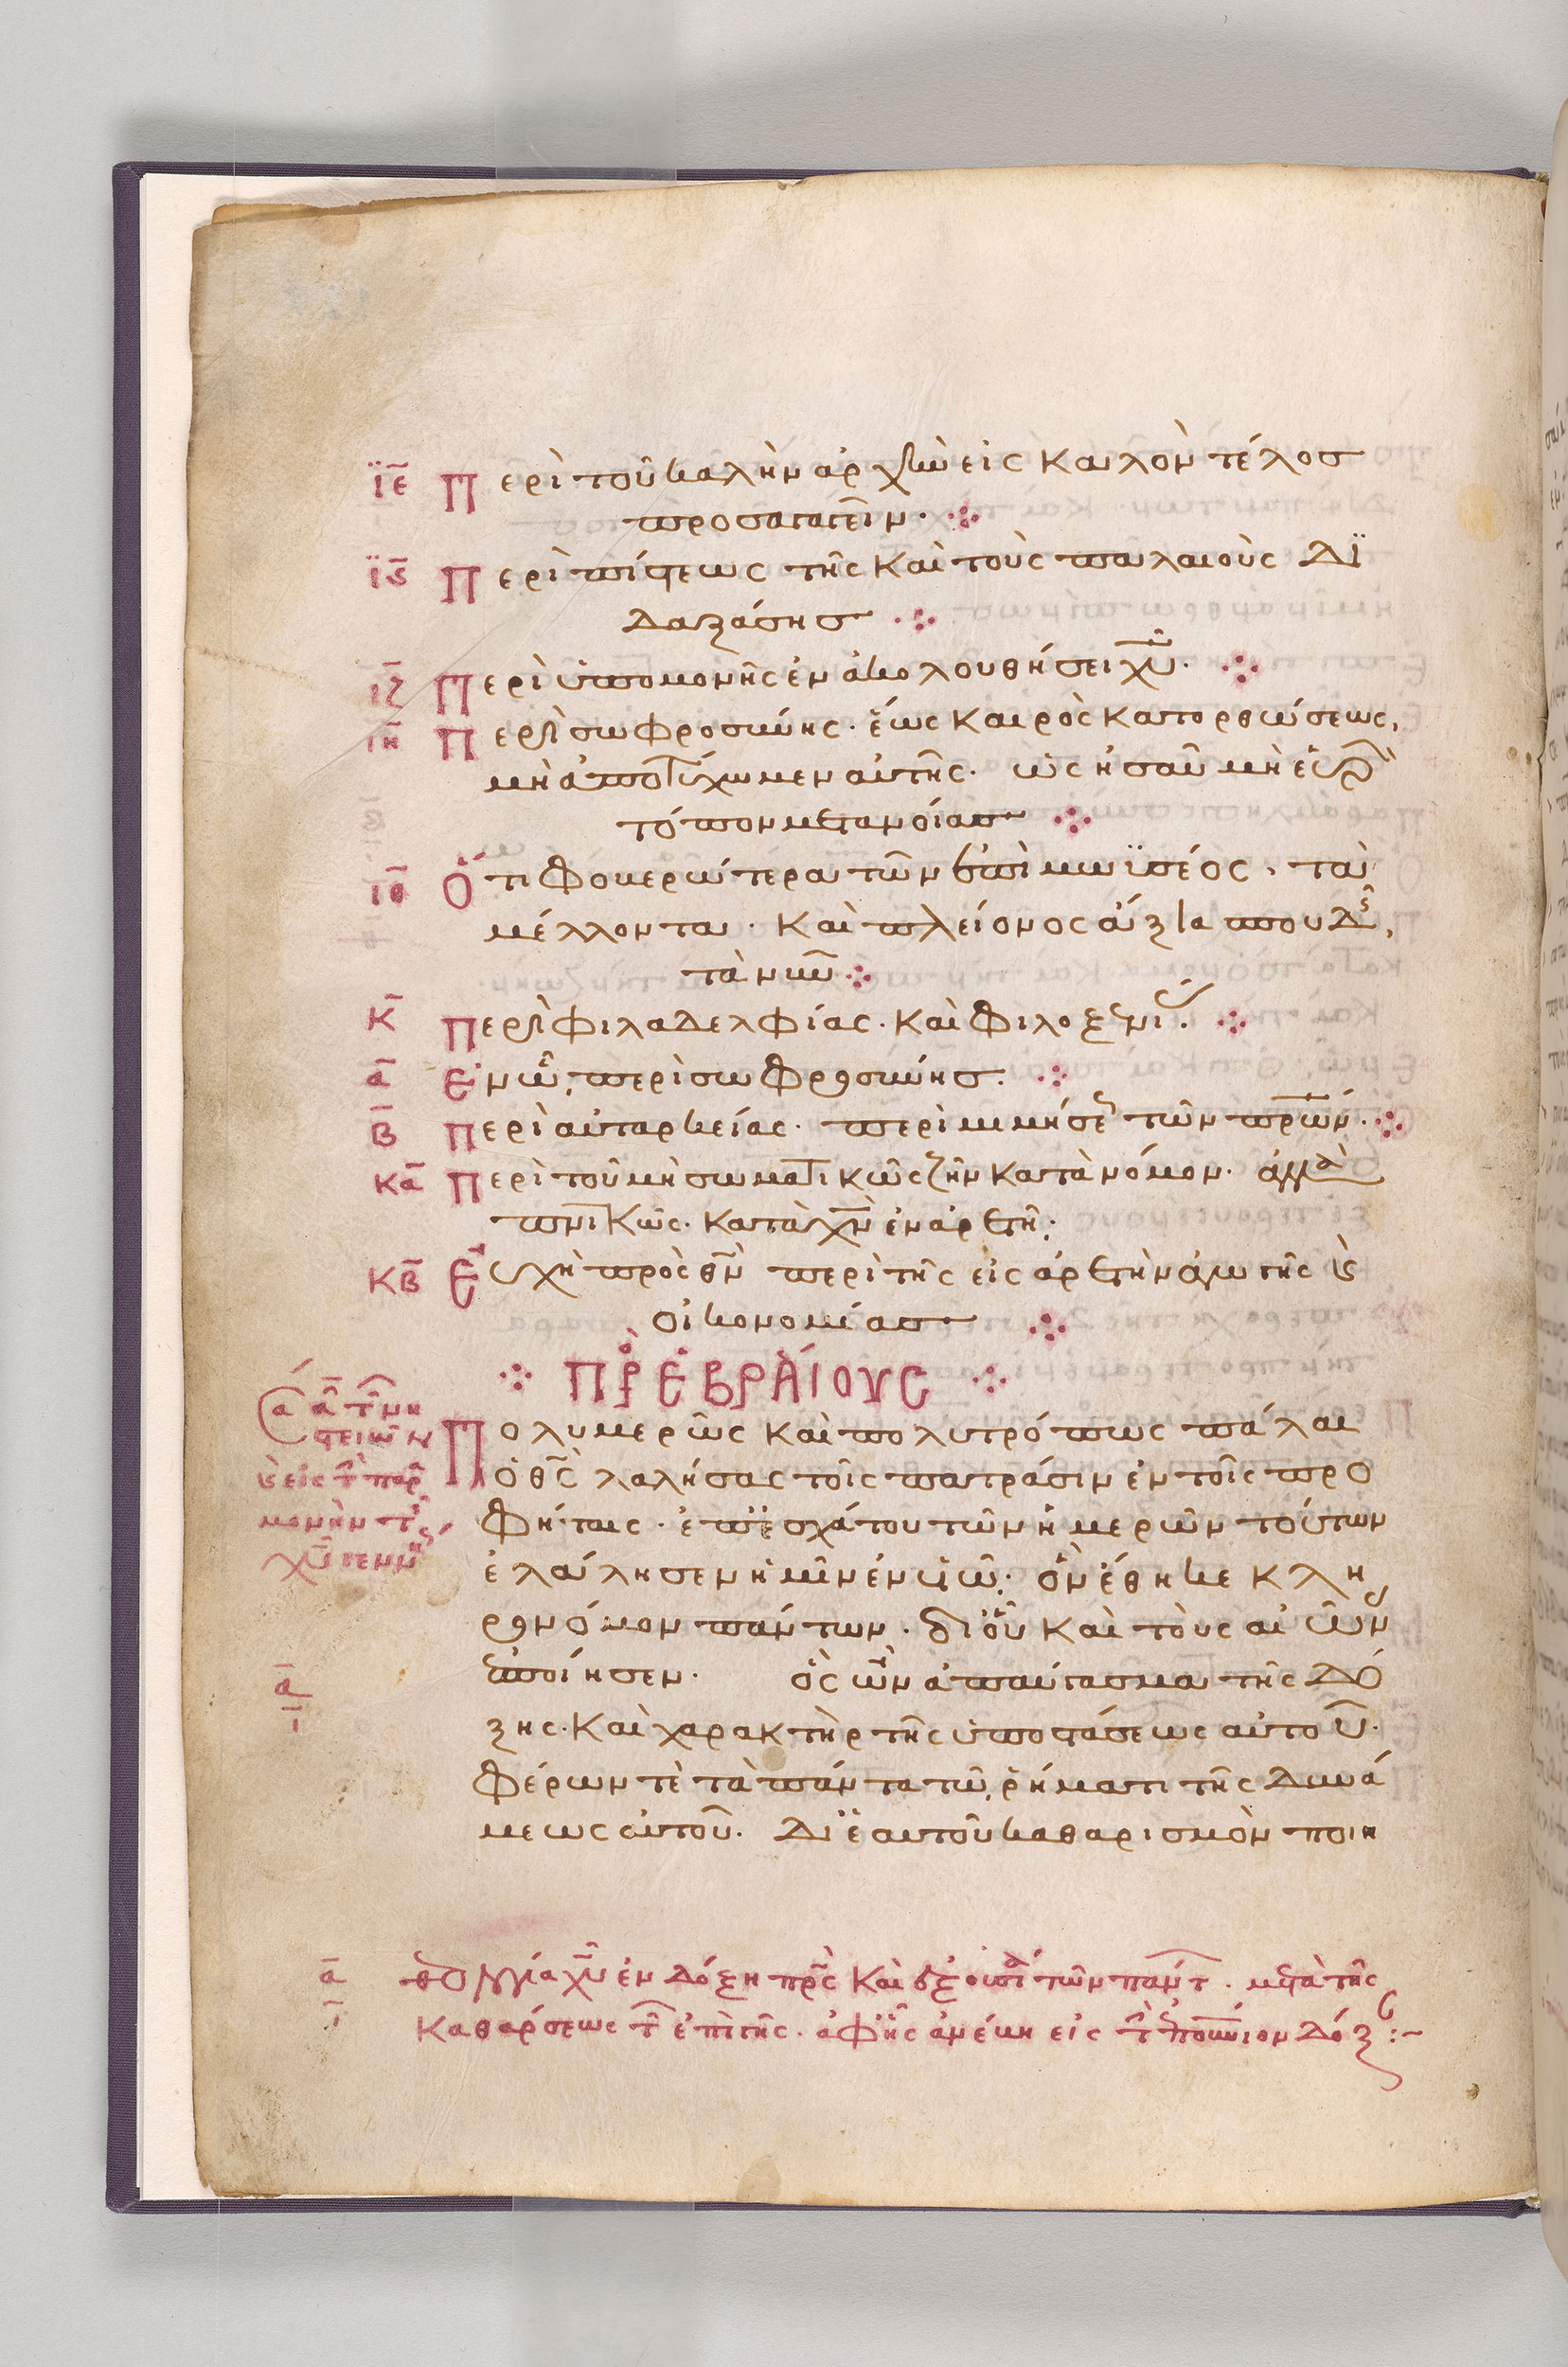 ιε Περὶ τοῦ καλὴν ἀρχὴν εἰς καλὸν τέλοσ
προσαγαγεῖν·
ις Περὶ πίστεως τῆς καὶ τοὺς παλαιοὺς δϊ
δαξάσησ
ιζ Περὶ ὑπομονῆς ἐν ἀκολουθήσει χυ·
ιη Περὶ σωφροσύνης· ἕως καιρὸς κατορθώσεως,
μὴ ἀποτύχωμεν αὐτῆς· ὡς ἡσαῦ μὴ εὑρ
τόπον μετανοίασ
ιθ Ὅτι φοβερώτερα τῶν ἐπὶ μωϊσέος, τὰ
μέλλοντα· καὶ πλείονος ἄξια σπουδς,
τὰ νῦν
κ Περὶ φιλαδελφίας· καὶ φιλοξενι·
α Ἐν ᾧ, περὶ σωφροσύνησ·
β Περὶ αὐταρκείας· περὶ μιμήσε τῶν πρων·
κα Περὶ τοῦ μὴ σωματικῶς ζῆν κατὰ νόμον· ἀλλὰ
πνικῶς· κατὰ χν ἐν ἀρετῇ·
κβ Εὐχὴ πρὸς θν περὶ τῆς εἰς ἀρετὴν ἀγωγῆς κς
οἰκονομίασ
ΠΡ ΕΒΡΑΙΟΥΣ
Πολυμερῶς καὶ πολυτρόπως πάλαι
ὁ θς λαλήσας τοῖς πατράσιν ἐν τοῖς προ
φήταις· ἐπ ἐσχάτου τῶν ἡμερῶν τούτων
ἐλάλησεν ἡμῖν ἐν υἱῷ· ὃν ἔθηκε κλη
ρονόμον πάντων· δι οὗ καὶ τοὺς αἰῶν
ἐποίησεν· ὃς ὢν ἀπαύγασμα τῆς δό
ξης· καὶ χαρακτὴρ τῆς ὑποστάσεως αὐτοῦ·
φέρων τὲ τὰ πάντα τῷ ῥήματι τῆς δυνά
μεως αὐτοῦ· δι ἑαυτοῦ καθαρισμὸν ποιη
α θεολογία χυ ἐν δόξη πρς καὶ ἐξουσία τῶν παντ· μετὰ τῆς
καθάρσεως τ ἐπὶ γῆς· ἀφ ἧς ἀνέβη εἰς τ ἐπουνιον δόξ